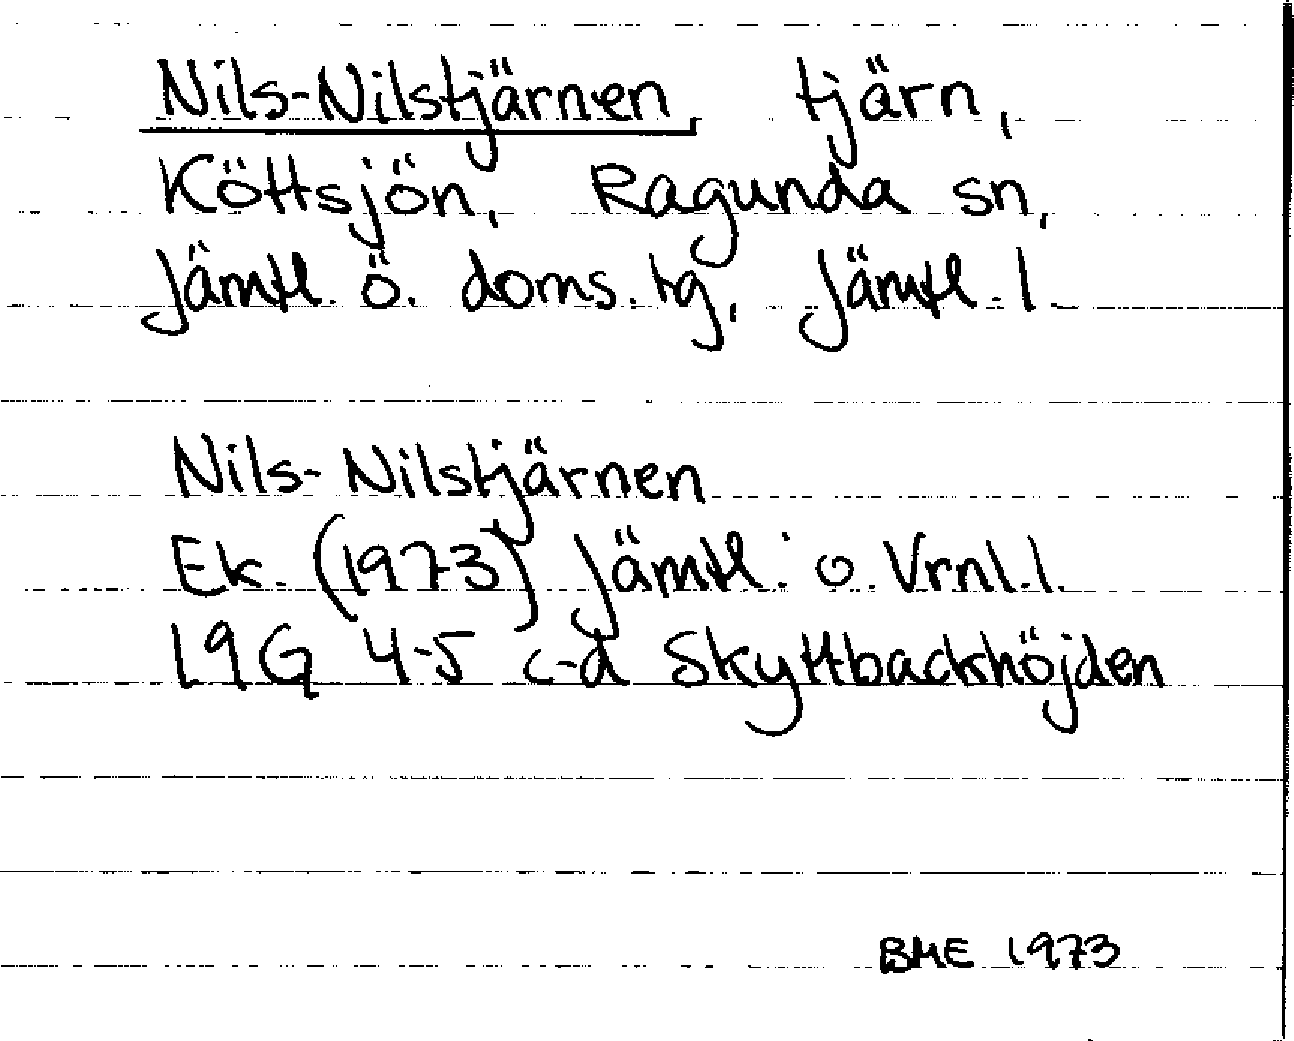 Nils-Nilstjärnen, tjärn,
Köttsjön, Ragunda sn,
Jämtl. ö. doms. tg, Jämtl. l.
Nils-Nilstjärnen
Ek. (1973) Jämtl. o. Vrnl. l.
19G 4-5 c-d Skyttbackhöjden
BME 1973